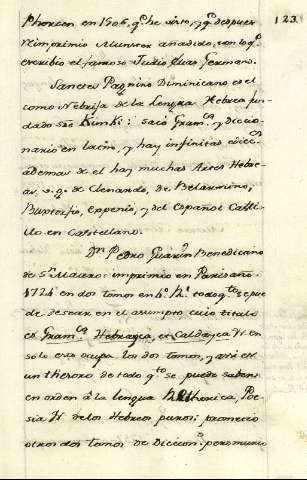 123.
Phorcen en 1506, q.e he visto, y q.e despues
reimprimio Munster añadido, con lo q.e
escribio el famoso Judio Elias Germano.
Sanctes Pagnino Dominicano es el
como Nebrija de la lengua Hebrea fun-
dado sre Kimki: sacó Gram.ca y diccio-
nario en latin, y hay infinitas edicc.s
ademas de el hay muchas Artes Hebre-
as, v.g. de Clenardo, de Belarmino,
Buxtorfio, Expenio, y del español Casti-
llo en Castellano.
Dn Pedro Guarin Benedictino
de S.n Mauro: imprimió en Paris año
1724 en dos tomos en 4.º todo q.to se pue
de desear en el asumpto cuio titulo
es Gram.ca Hebrayca, et Caldayca
solo esa ocupa los dos tomos, y assi es
un thesoro de todo q.to se puede saber
en orden á la lengua Rethorica, Poe-
sia &. de los Hebreos puros: prometió
otros dos tomos de Diccion.o pero murio